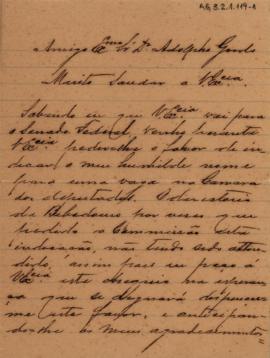 AG 3.2.1.119-1
Amigo Exmo Sr. Dr. Adolpho Gordo
Muito Saudar a V Excia.
Sabendo eu que V Excia vai para
o Senado Federal, venho perante
V Excia pedir-lhe o favor de in
dicar o meu humilde nome
para uma vaga na Camara
dos deputados. O directorio
de por vezes que
pedido a Commissão esta
indicação, não tendo sido atten
dido, assim pois eu peço á
V Excia este obsequio na esperan
ça que se dignará dispensar
me este favor, e anticipan
do-lhe os meus agradecimentos